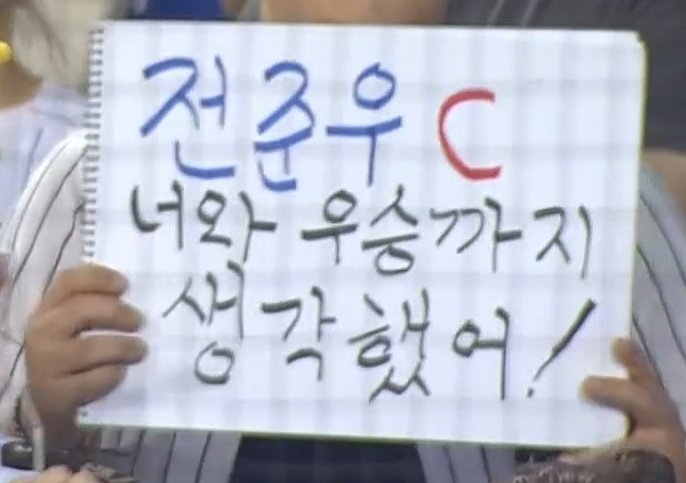 전준우 C
너와 우승까지
생각했어!